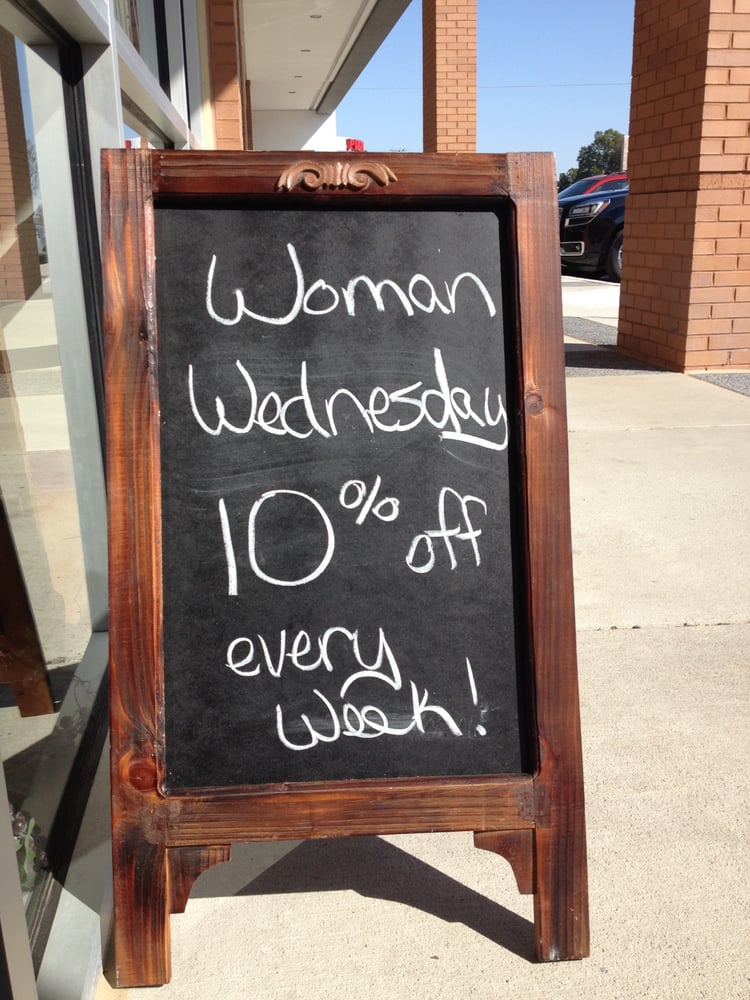 Woman
Wednesday
10% off
every
Week!